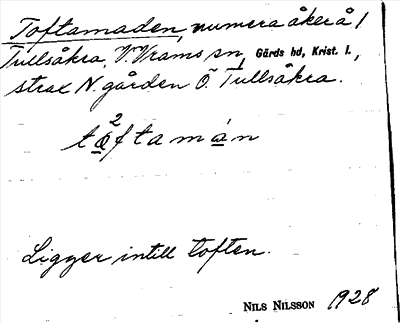 Toftamaden, numera åker å 1
Tullsåkra, V. Vrams sn, Gärds hd, Krist. l.,
strax N. gården Ö. Tullsåkra.
2
tåftamån
Ligger intill toften.
NILS NILSSON 1928